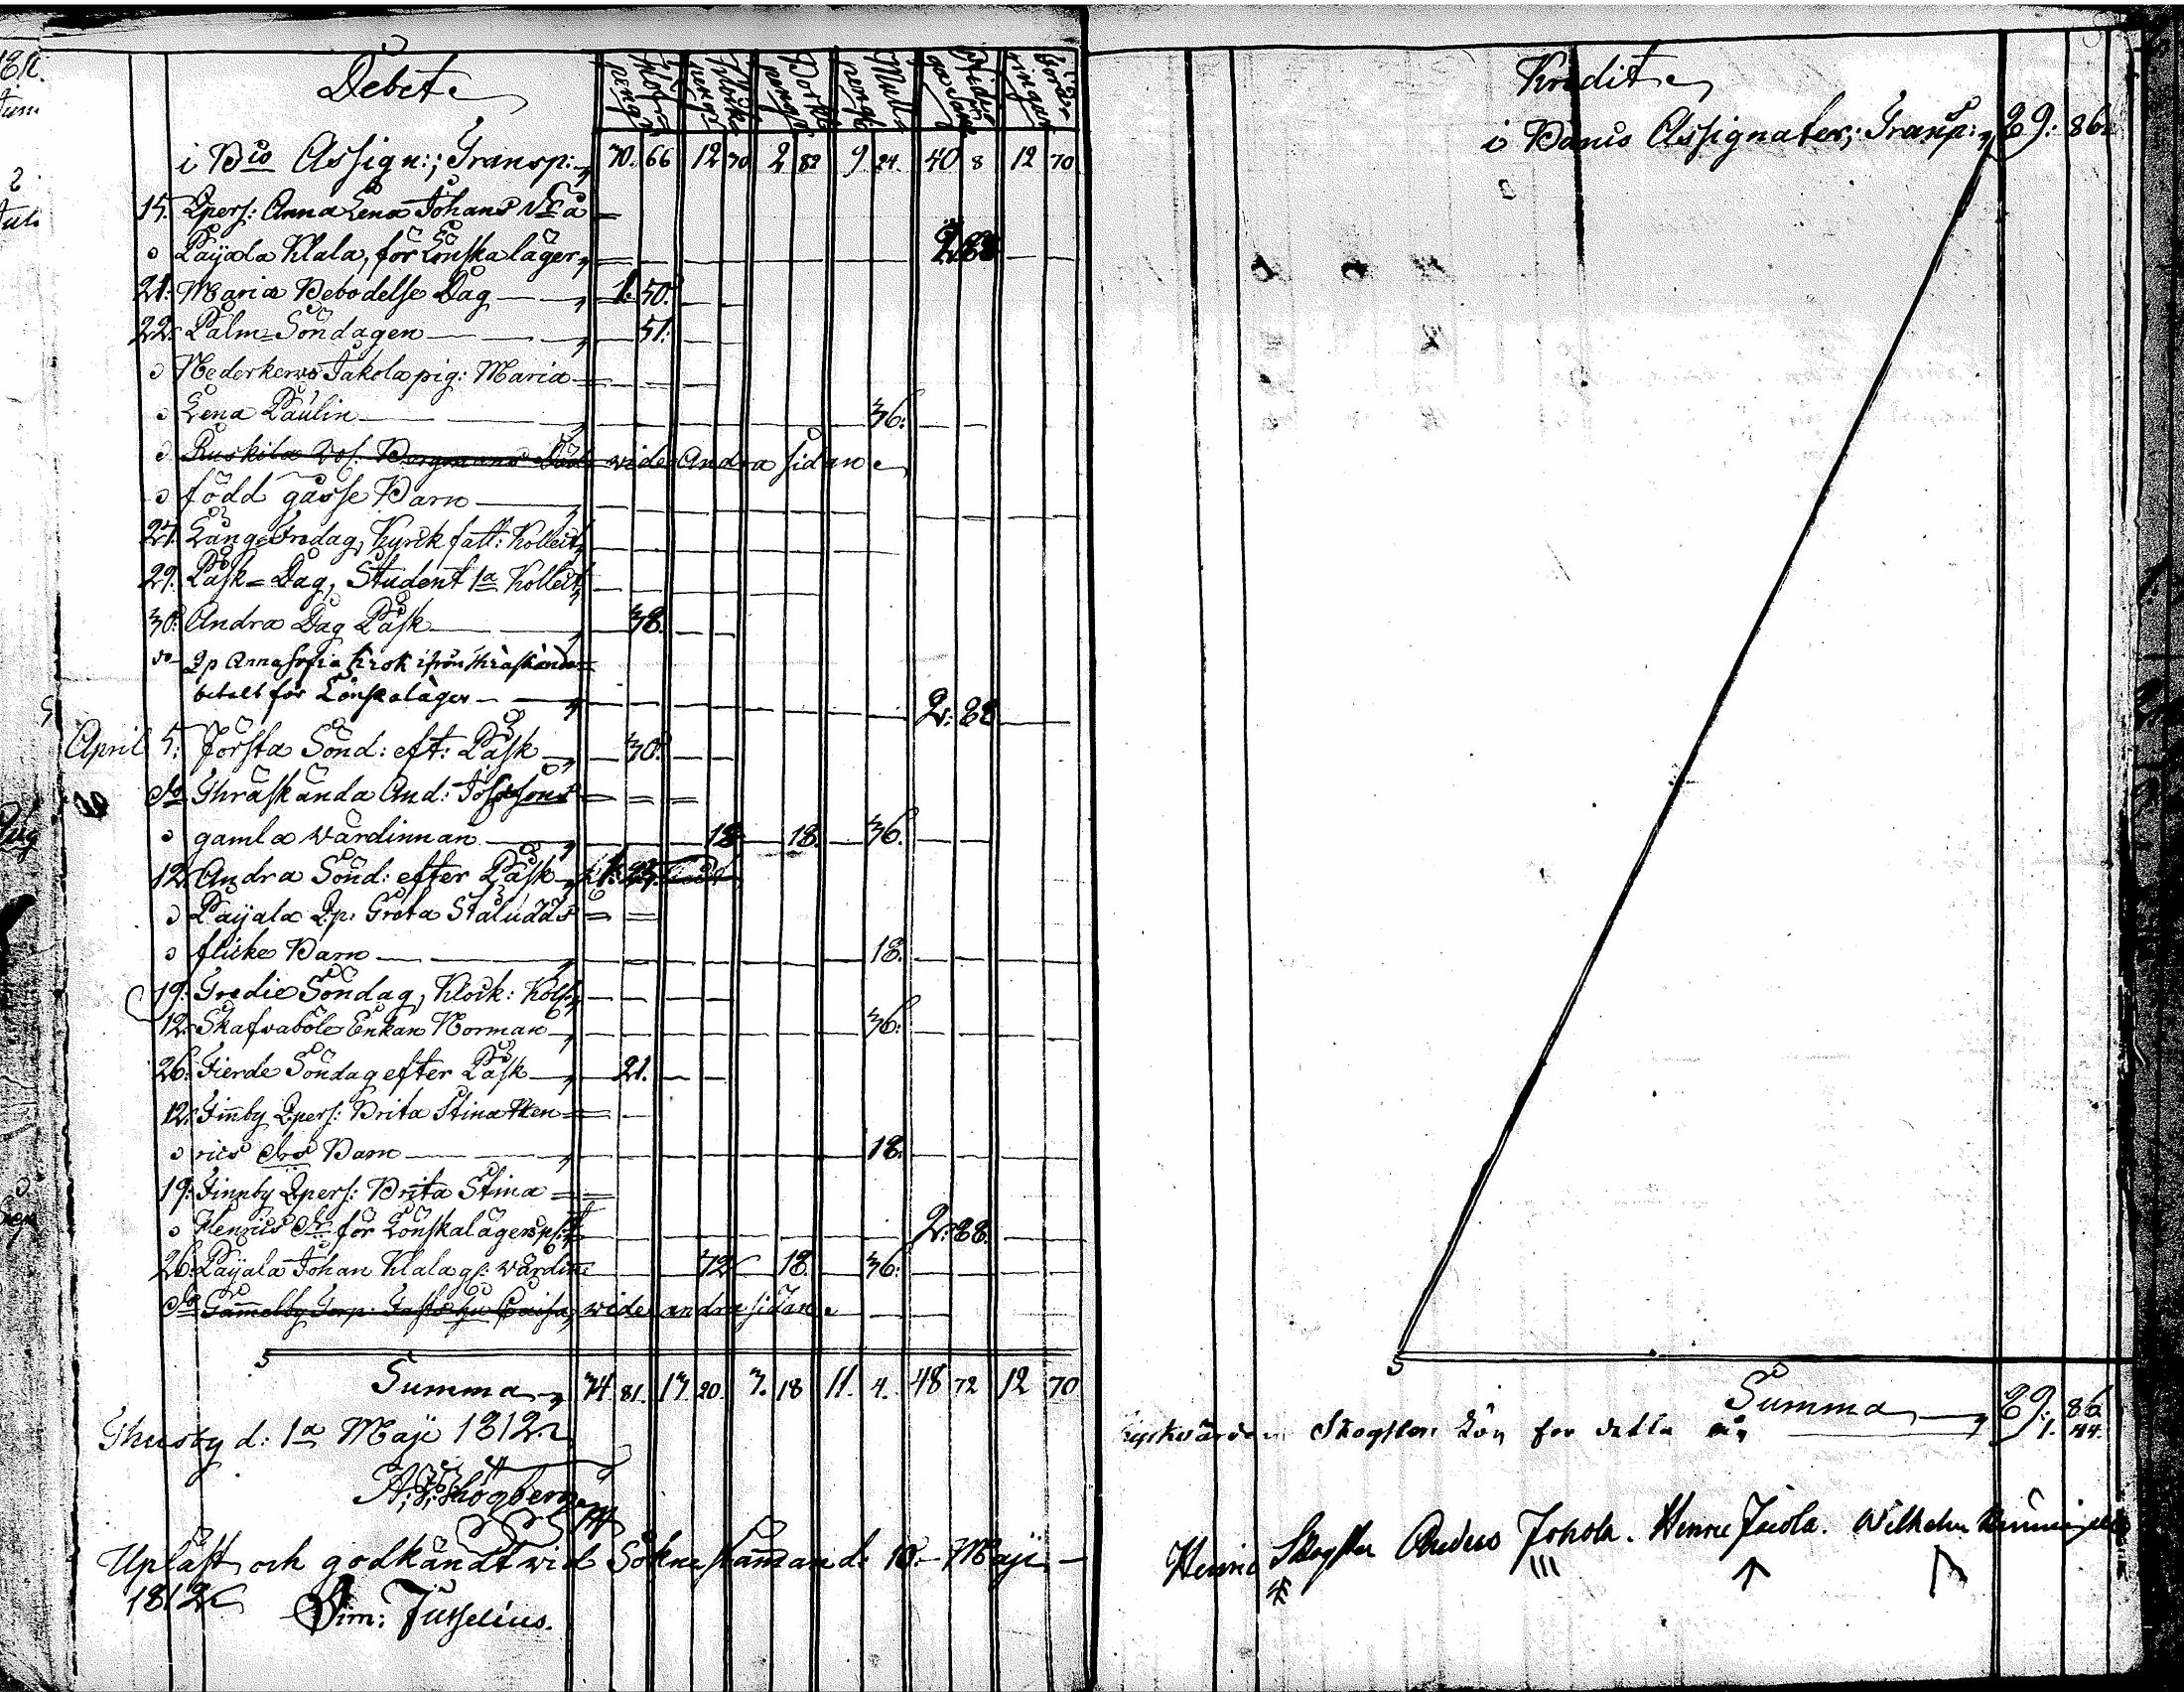 Debet
Håf- penge
Klock penge
Bork penge
Mull penge
i Bco Assign:; Transp: 70. 66 12 70 2 82 9. 24. 40 8 12 70
15. Qpers: Anna Lena Johans
Paijala Klala, för Lönskaläger 2. 88
21. Mariæ Bebodelse Dag 1. 50.
22. Palm-Söndagen 51.
Nederkervo Jakola pig: Maria
Lena Paulin 36.
wide Andra sidan
född gåsse Barn
27. Lång-Fredag, Kyrk fatt: Kollect
29. Påsk-Dag, Student 1a Kollect
30. Andra Dag Påsk 38.
do Qp Anna Sofia Krok ifrån Thräskända
betalt för Lönskaläger 2: 88
April 5. Första Sönd: eft: Påsk 30.
do Thräskända And: Josefsons
gamla värdinnan 18 18. 36.
12. Andra Sönd: efter Påsk 1. 23.
Paijala Qp: Greta Staludds
flicke Barn 18.
19. Tredie Söndag, Klock: Koll:
12. Skafvaböle Enkan Norman 36.
26. Fierde Söndag efter Påsk 21.
12. Finnby Qpers: Brita Stina Hen
rics dr Barn 18.
19. Finnby Qpers: Brita Stina
Henrics dr för Lönskaläger 2: 88.
26. Paijala Johan Klala gs: värdin 72 18. 36.
wide andra sidan
Summa 74 81. 13. 20. 3. 18 11. 4. 48 72 12 70
Thusby d: 1a Maji 1812.
Upläst och godkändt wid Sokne stämman d: 10. Maji
1812
Sim: Jusselius.
Kredit
i Banco Assignater; Transp: 89: 86.
Summa 89: 86
Kyrkvärden Skogster Lön för detta år 1. 44.
Henric Skogster Anders Johola. Henric Jacola. Wilhelm